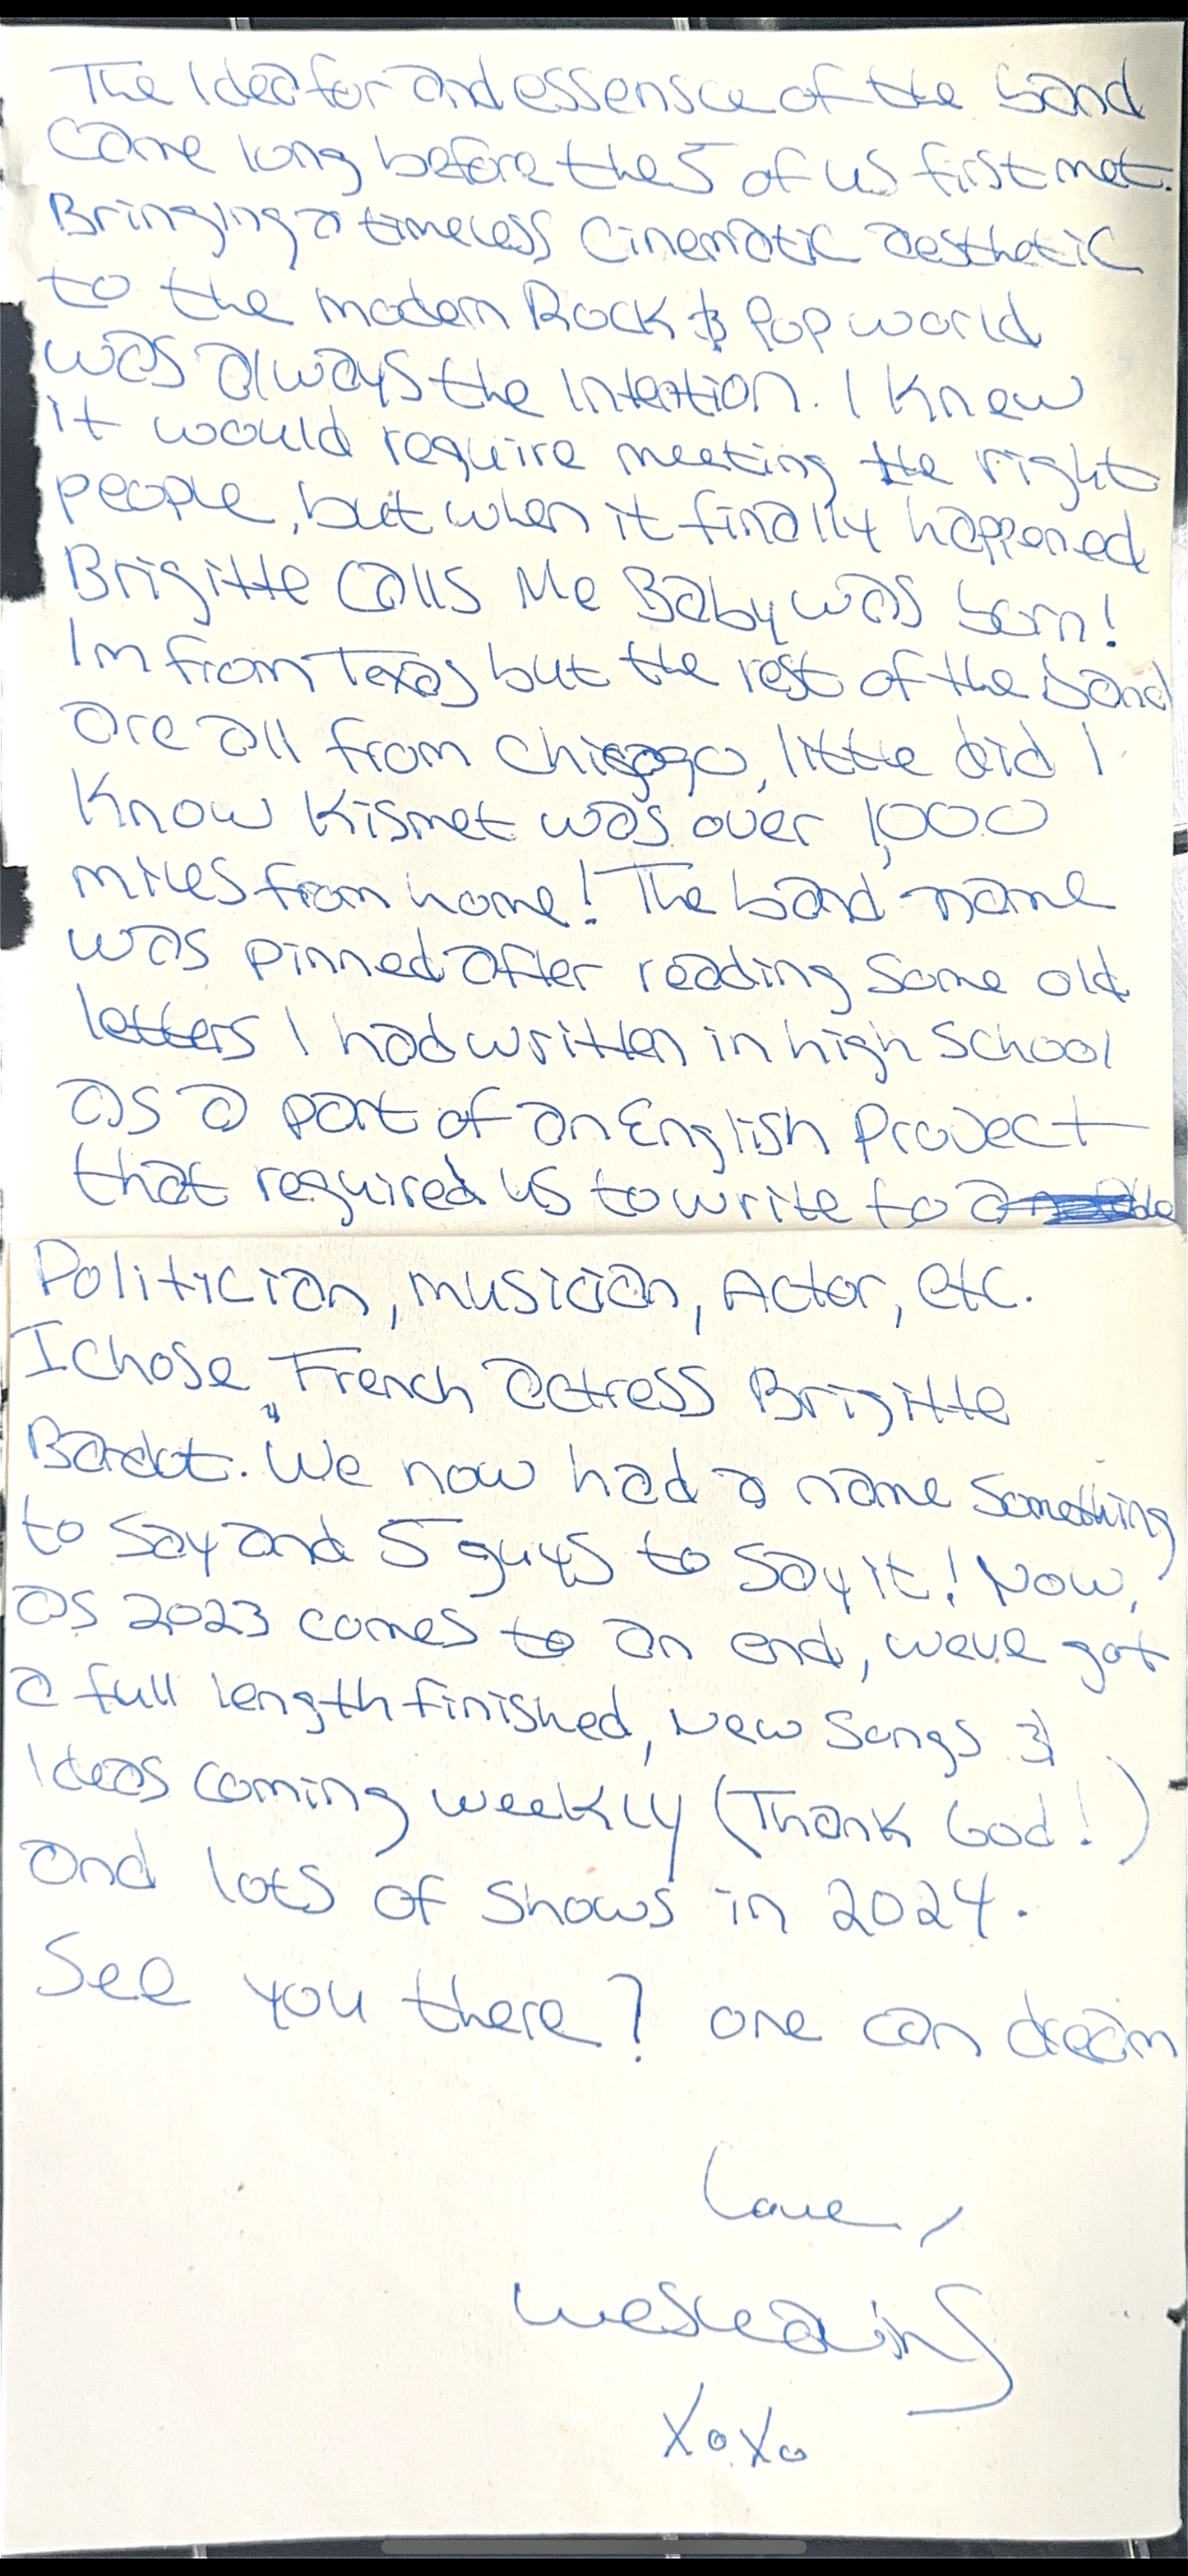 The Idea for and essensce of the band
Came long before the 5 of us first met.
Bringing a timeless Cinematic aesthetic
to the modern Rock & Pop world
was always the Intention. I Knew
it would require meeting the right
people, but when it finally happened
Brigitte Calls Me Baby was born!
Im from Texas but the rest of the band
are all from Chicago, little did I
Know Kismet was over 1,000
miles from home! The band name
was pinned after reading Some old
letters I had written in high School
as a part of an English Project
that required us to write to a
Politician, musician, Actor, etc.
I chose French actress Brigitte
Bardot. We now had a name Something
to Say and 5 guys to Say it! Now,
as 2023 comes to an end, weve got
a full length finished, New Songs &
Ideas coming weekly (Thank God!)
and lots of Shows in 2024.
See you there? one can dream
Love,
Wes Leavins
XoXo